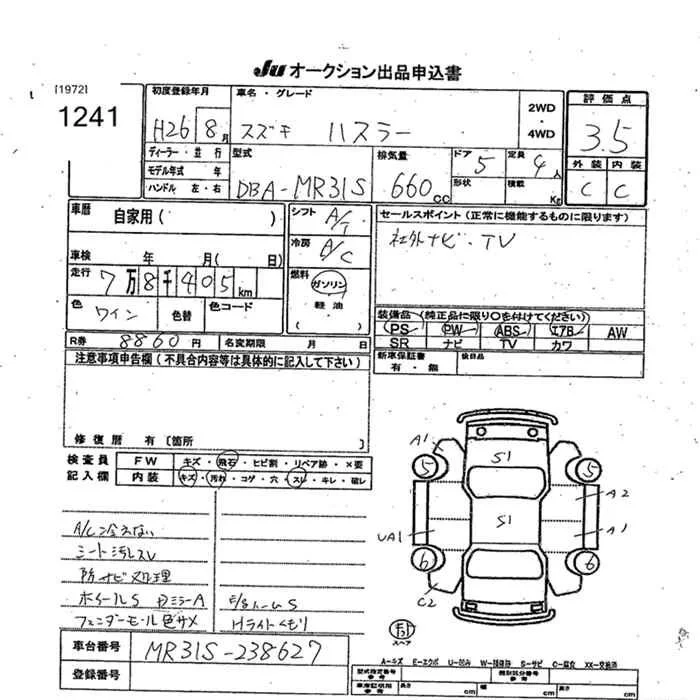 JU オークション出品申込書
[1972]
1241
初度登録年月
H26 8月
車名・グレード
スズキ ハスラー
2WD
・
4WD
評価点
3.5
外装 内装
C C
ディーラー・並行
モデル年式 年
ハンドル 左・右
型式
DBA-MR31S
排気量
660cc
ドア 5
形状
定員 4人
積載 Kg
車歴 自家用( )
車検 年 月( 日)
走行 7万8千405km
色 ワイン 色替 色コード
シフト A/T
冷房 A/C
燃料
ガソリン
軽油
( )
セールスポイント(正常に機能するものに限ります)
社外ナビ・TV
装備品 (純正品に限り○を付けてください)
PS PW ABS エアB AW
SR ナビ TV カワ
新車保証書
有・無
後日品
R券 8860円 名変期限 月 日
注意事項申告欄(不具合内容等は具体的に記入して下さい)
修復歴 有〔箇所
検査員
記入欄
FW キズ・飛石・ヒビ割・リペア跡・×要
内装 キズ・汚れ・コゲ・穴・スレ・キレ・破レ
A/C冷えない
シート汚レスレ
防ナビ処理
ホイールS
フェンダーモール色サメ
Hライトくもり
A1
S1
5
5
A2
S1
UA1
A1
6
6
C2
スペア
車台番号 MR31S-238627
登録番号
A-キズ E-エクボ U-凹み W-補修跡 S-サビ C-腐食 XX-交換済
型式指定番号
参考
類別区分番号
参考
車庫証明用
参考
長さ cm 幅 cm 高さ cm